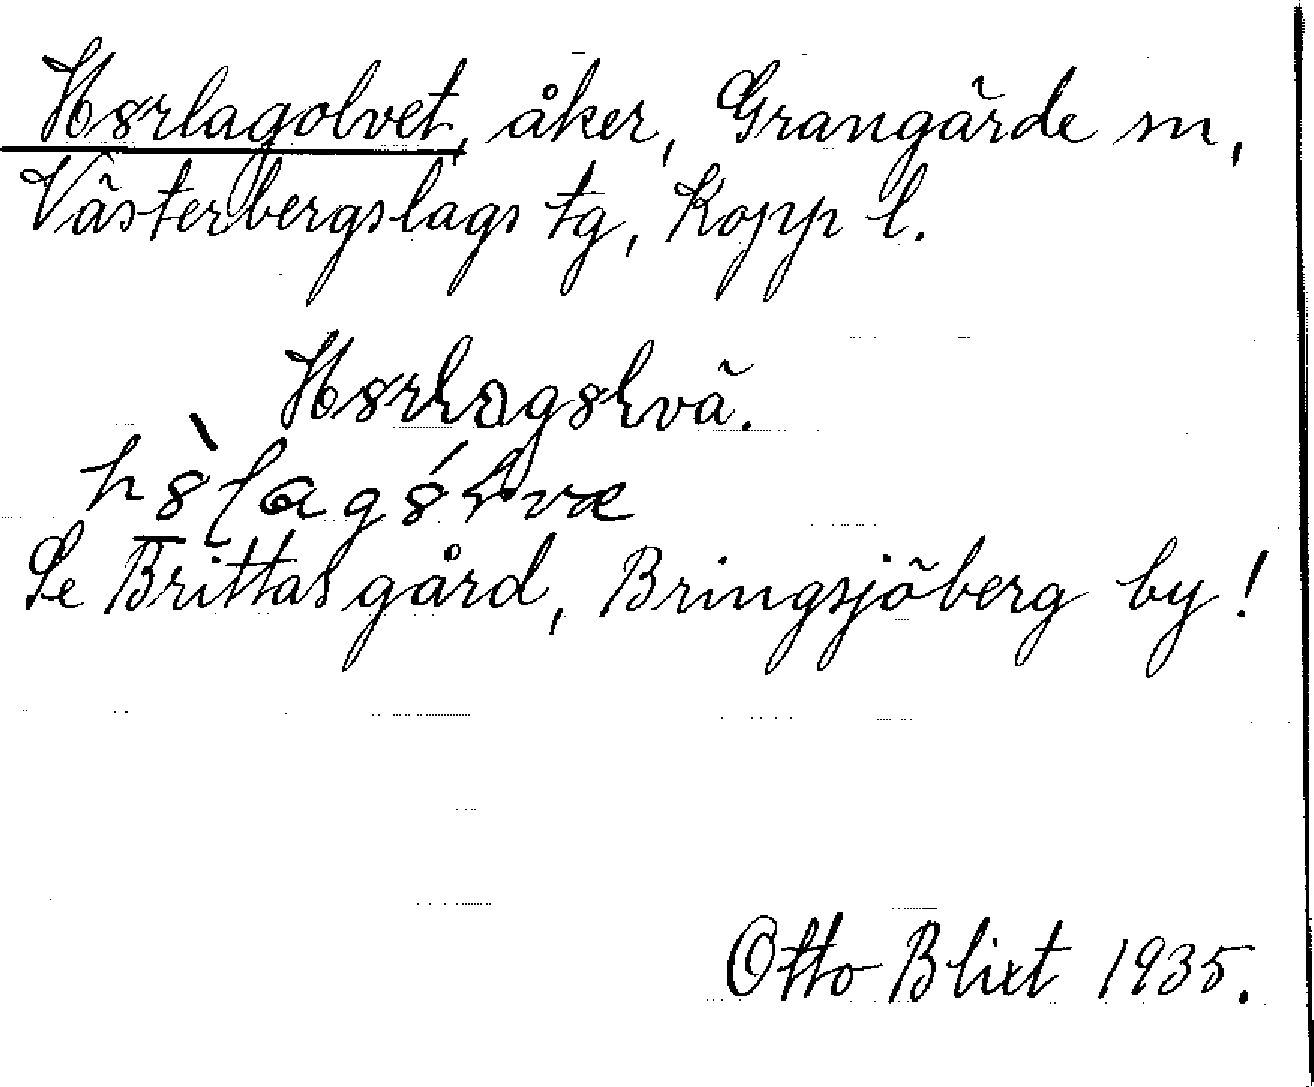 H8rlagolvet, åker, Grangärde sn,
Västerbergslags tg, Kopp l.
Se Brittas gård, Bringsjöberg by!
Otto Blixt 1935.